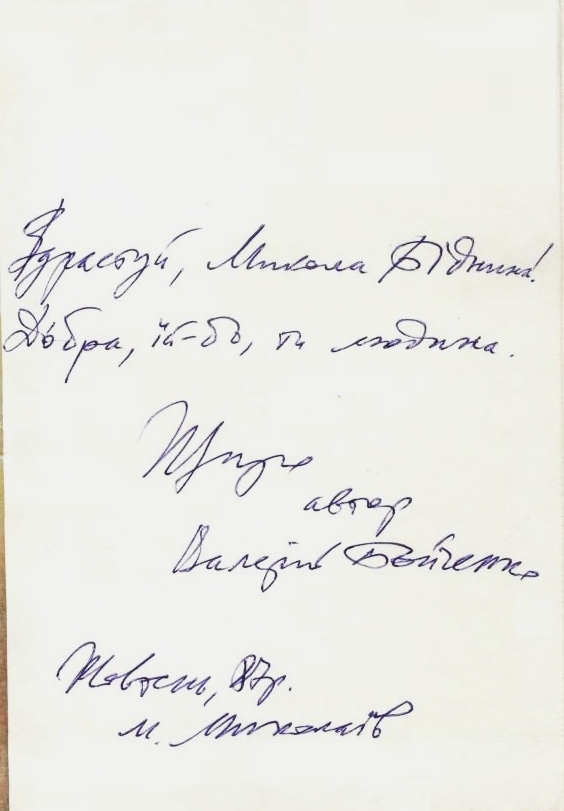 Здрастуй, Микола Біднина!
Добра, їй-бо, ти людина.
Щиро
автор
Валерій Бойченко
Жовтень, 87р.
м. Миколаїв